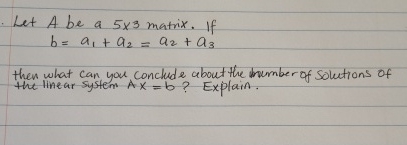 . Let A be a 5x3 matrix. If
b = a₁ + a₂ = a₂ + a₃
then what can you conclude about the number of solutions of
the linear system Ax = b ? Explain.